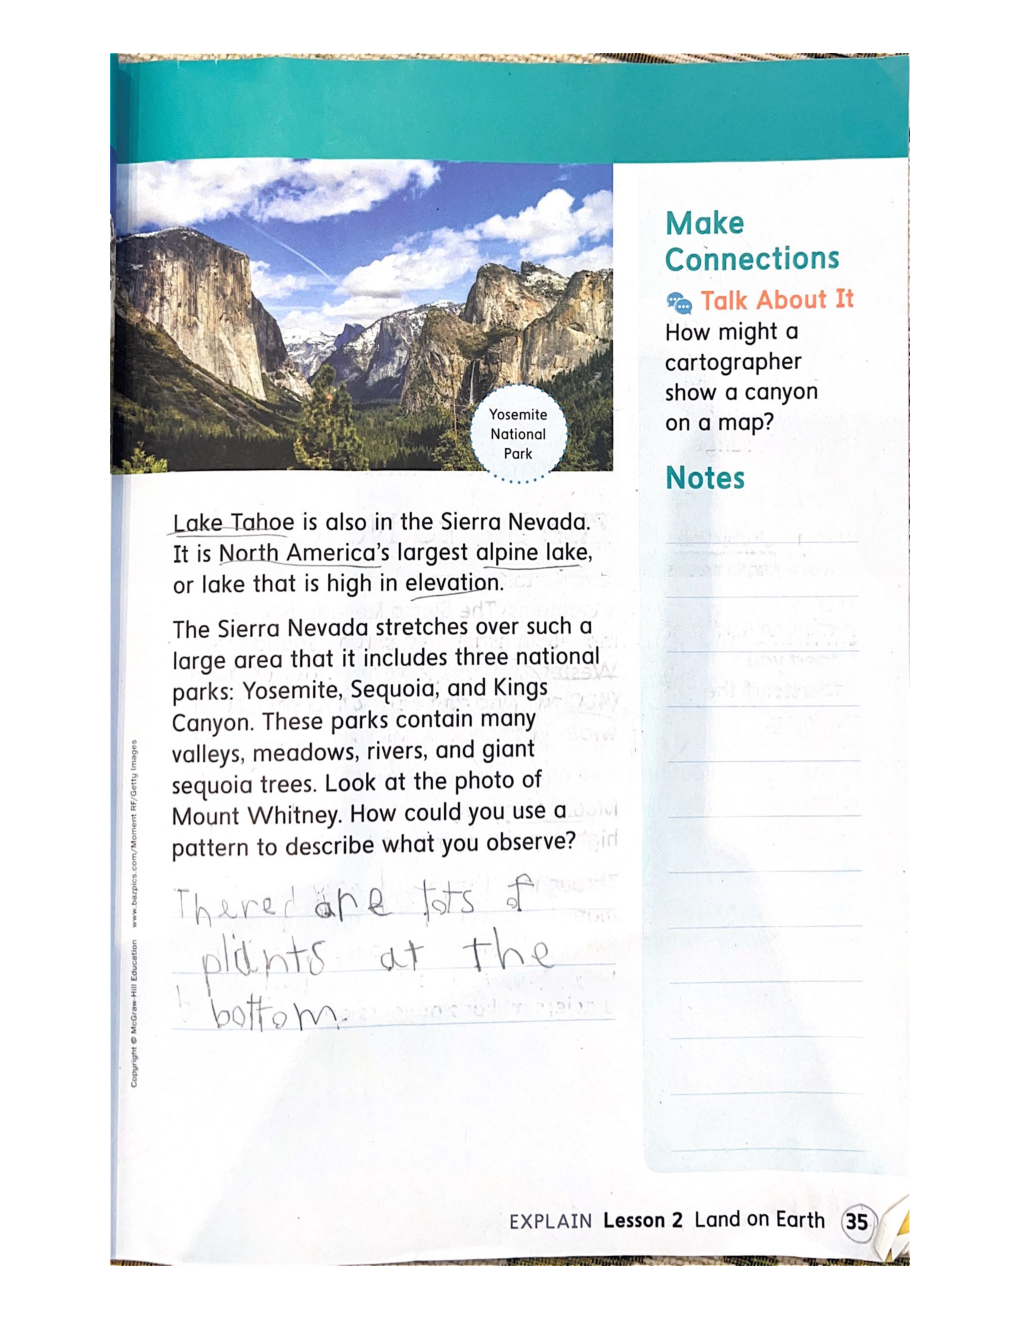 Make
Connections
Talk About It
How might a
cartographer
show a canyon
on a map?
Notes
Yosemite
National
Park
Lake Tahoe is also in the Sierra Nevada.
It is North America's largest alpine lake,
or lake that is high in elevation.
The Sierra Nevada stretches over such a
large area that it includes three national
parks: Yosemite, Sequoia, and Kings
Canyon. These parks contain many
valleys, meadows, rivers, and giant
sequoia trees. Look at the photo of
Mount Whitney. How could you use a
pattern to describe what you observe?
There are lots of
plants at the
bottom.
Copyright © McGraw-Hill Education www.bazpics.com/Moment RF/Getty Images
EXPLAIN Lesson 2 Land on Earth 35